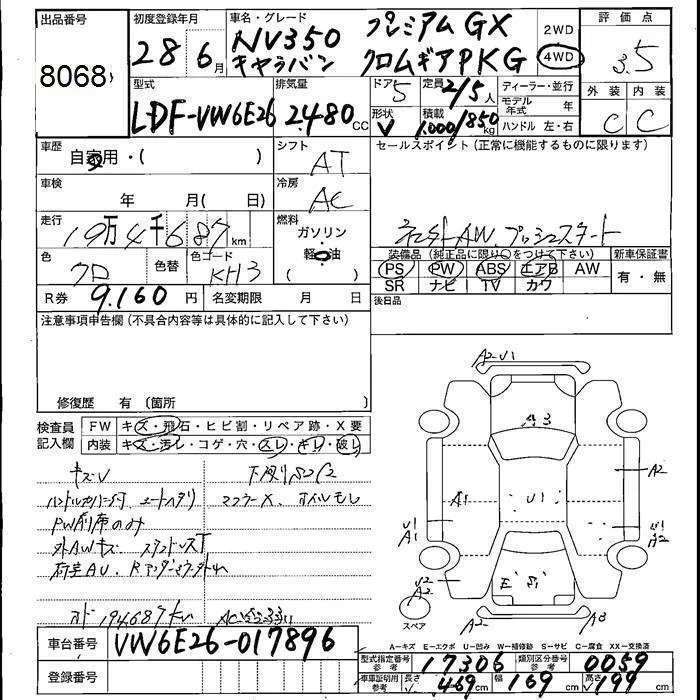 出品番号
8068
初度登録年月
28 6月
車名・グレード
NV350 プレミアムGX
キャラバン クロムギアPKG
2WD
4WD
評価点
3.5
外装 内装
C C
型式
LDF-VW6E26
排気量
2.480 CC
ドア
5
定員
2/5人
形状
V
積載
1.000/850 kg
ディーラー・並行
モデル年式 年
ハンドル 左・右
車歴
自家用・( )
シフト
AT
セールスポイント (正常に機能するものに限ります)
車検
年 月( 日)
冷房
AC
走行
19万4千687 km
燃料
ガソリン
軽油
( )
社外AW、プッシュスタート
色
クロ
色替
色コード
KH3
装備品 (純正品に限り○をつけて下さい)
PS PW ABS エアB AW
SR ナビ TV カワ
新車保証書
有・無
R券 9.160円
名変期限 月 日
後日品
注意事項申告欄 (不具合内容等は具体的に記入して下さい)
修復歴 有 (箇所 )
検査員記入欄
FW キズ・飛石・ヒビ割・リペア跡・X要
内装 キズ・汚レ・コゲ・穴・スレ・キレ・破レ
キズV
下廻りS2C2
マフラーX、オイルモレ
PW前席のみ
外AWキズ
194687km
A2 U1
A3
A1
U1
A2
U1
A1
U2
A2
A2
A3
スペア
A-キズ E-エクボ U-凹み W-補修跡 S-サビ C-腐食 XX-交換済
車台番号
VW6E26-017896
登録番号
型式指定番号 参考
17306
類別区分番号 参考
0059
車庫証明用 参考
長さ 469cm
幅 169cm
高さ 199cm